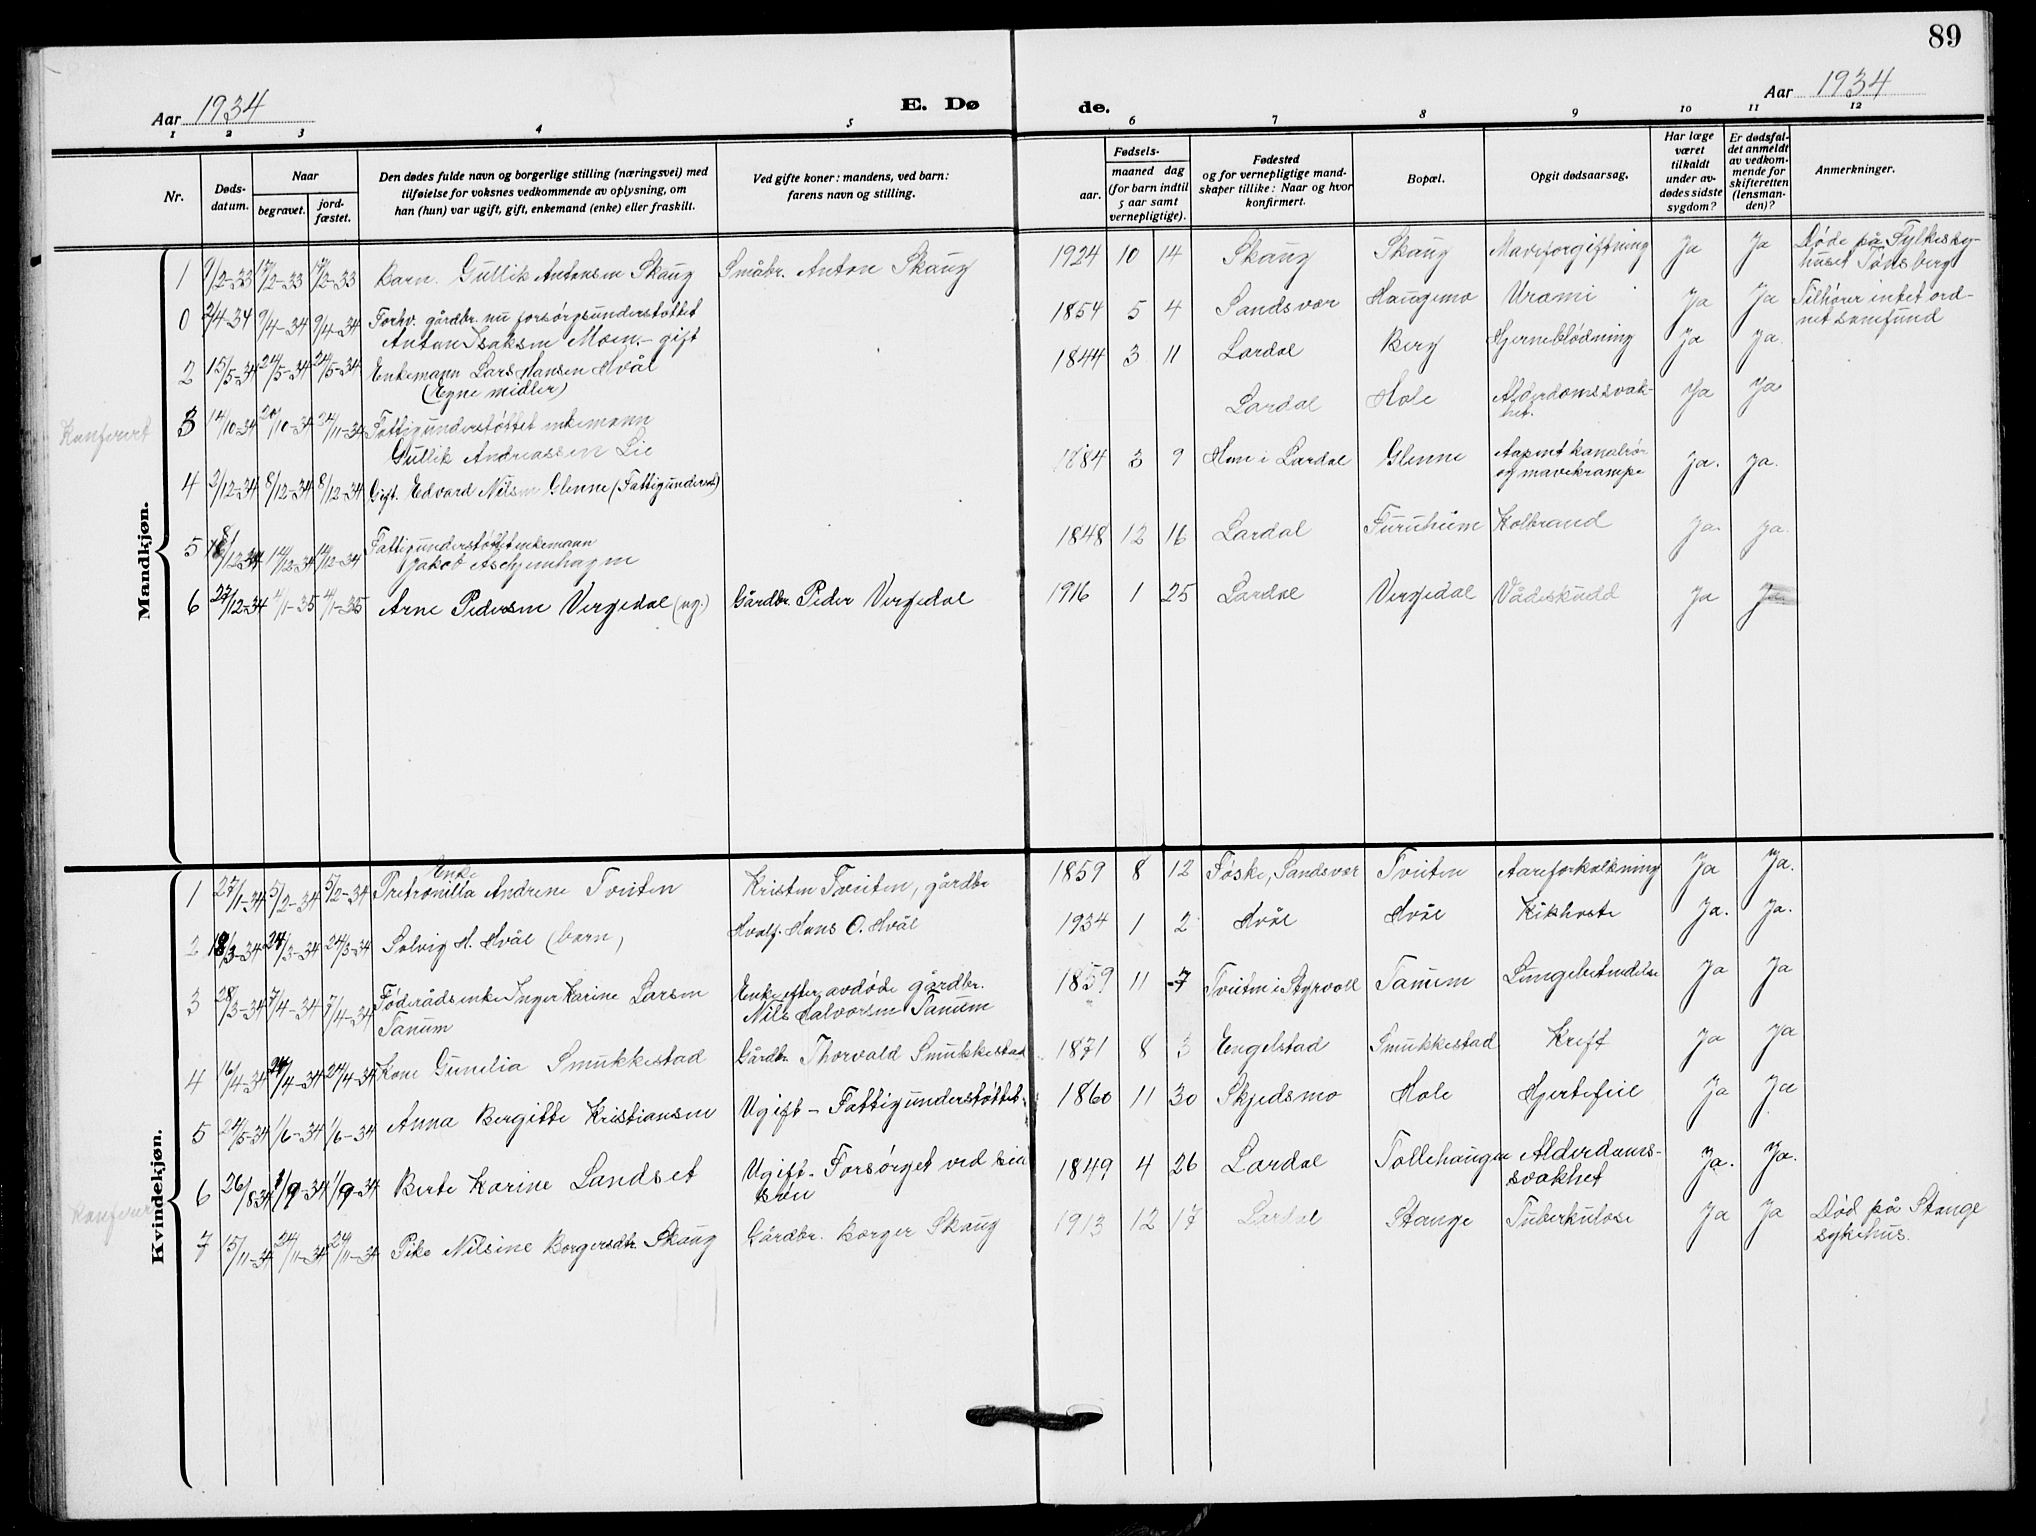 89
Aar 1934
E. Dø
de.
Aar 1934
1 2 3 4 5 6 7 8 9 10 11 12
Nr.
Døds-
datum.
Naar
begravet.
jord-
fæstet.
Den dødes fulde navn og borgerlige stilling (næringsvei) med
tilføielse for voksnes vedkommende av oplysning, om
han (hun) var ugift, gift, enkemand (enke) eller fraskilt.
Ved gifte koner: mandens, ved barn:
farens navn og stilling.
Fødsels-
aar.
maaned dag
(for barn indtil
5 aar samt
vernepligtige).
Fødested
og for vernepligtige mand-
skaper tillike: Naar og hvor
konfirmert.
Bopæl.
Opgit dødsaarsag.
Har læge
været
tilkaldt
under av-
dødes sidste
sygdom?
Er dødsfal-
det anmeldt
av vedkom-
mende for
skifteretten
(lensman-
den)?
Anmerkninger.
Mandkjøn.
1 9/2-33 17/2-33 17/2-33 Barn. Gullik Antonsen Skaug Småbr. Anton Skaug 1924 10 14 Skaug Skaug Maveforgiftning Ja Ja Døde på Fylkesby-
huset Tønsberg
0 2/4-34 9/4-34 9/4-34 Forhv. gårdbr. nu forsørgsunderstøttet
Anton Isaksen Moen - gift 1854 5 4 Sandsvær Haugemo Urämi Ja Ja Tilhører intet ord-
net samfund
2 15/5-34 24/5-34 24/5-34 Enkemann Lars Hansen Hvål
(Egne midler) 1844 3 11 Lardal Berg Hjerneblødning Ja Ja.
Konferert
3 14/10-34 20/10-34 24/11-34 Fattigunderstøttet enkemann
Gullik Andreassen Lie Lardal Hole Alderdomssvak-
het. Ja Ja
4 2/12-34 8/12-34 8/12-34 Gift. Edvard Nilsen Glenne (Fattigunderst) 1884 3 9 Hem i Lardal Glenne Aapent kanalrør
og mavekrampe Ja. Ja.
5 8/12-34 14/12-34 14/12-34 Fattigunderstøttet enkemann
Jakob Aschjemhagen 1848 12 16 Lardal Furuheim Kolbrand Ja. Ja.
6 27/12-34 4/1-35 4/1-35 Arne Pedersen Vergedal (ug.) Gårdbr. Peder Vergedal 1916 1 25 Lardal Vergedal Vådeskudd Ja Ja
Kvindekjøn.
1 27/1-34 5/2-34 5/2-34 Enke
Pretronilla Andrine Tveiten Kristen Tveiten, gårdbr 1859 8 12 Føske, Sandsvær Tveiten Aareforkalkning Ja Ja.
2 18/3-34 24/3-34 24/3-34 Solvig H. Hvål (barn) Hvalf. Hans O. Hvål 1934 1 2 Hvål Hvål Kikhoste Ja. Ja.
3 28/3-34 7/4-34 7/4-34 Føderådsenke Inger Karine Larsen
Tanum Enke efter avdøde gårdbr.
Nils Halvorsen Tanum 1859 11 7 Tveiten i Styrvoll Tanum Lungebetendelse Ja Ja
4 16/4-34 24/4-34 24/4-34 Kone Gunelia Smukkestad Gårdbr. Thorvald Smukkestad 1871 8 3 Engelstad Smukkestad Kreft Ja Ja
5 24/5-34 1/6-34 1/6-34 Anna Bergitte Kristiansen Ugift - Fattigunderstøttet. 1860 11 30 Skjedsmo Hole Hjertefeil Ja Ja
6 26/8-34 1/9-34 1/9-34 Berte Karine Landset Ugift - Forsørget ved sin
søn 1849 4 26 Lardal Tollehaugen Alderdoms-
svakhet Ja. Ja.
Konferert
7 15/11-34 24/11-34 24/11-34 Pike Nilsine Borgersdtr. Skaug Gårdbr. Borger Skaug 1913 12 17 Lardal Stange Tuberkulose Ja Ja Død på Stange
sykehus.